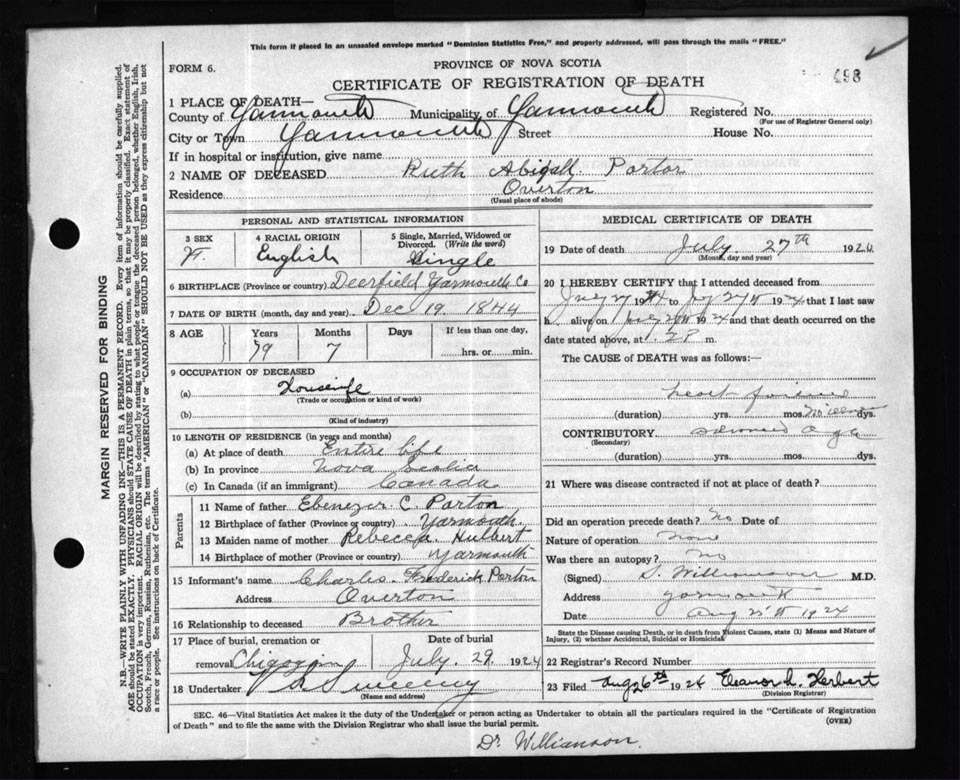 This form if placed in an unsealed envelope marked "Dominion Statistics Free," and properly addressed, will pass through the mails "FREE."
FORM 6.
PROVINCE OF NOVA SCOTIA
498
CERTIFICATE OF REGISTRATION OF DEATH
1 PLACE OF DEATH—
County of Yarmouth Municipality of Yarmouth Registered No.
(For use of Registrar General only)
City or Town Yarmouth Street House No.
If in hospital or institution, give name
2 NAME OF DECEASED Ruth Abigall Porter
Residence Overton
(Usual place of abode)
PERSONAL AND STATISTICAL INFORMATION
3 SEX 4 RACIAL ORIGIN 5 Single, Married, Widowed or Divorced. (Write the word)
F. English Single
6 BIRTHPLACE (Province or country) Deerfield Yarmouth Co
7 DATE OF BIRTH (month, day and year) Dec 19. 1844
8 AGE Years Months Days If less than one day,
79 7 hrs. or min.
9 OCCUPATION OF DECEASED
(a) Housewife
(Trade or occupation or kind of work)
(b)
(Kind of industry)
10 LENGTH OF RESIDENCE (in years and months)
(a) At place of death Entire life
(b) In province Nova Scotia
(c) In Canada (if an immigrant) Canada
Parents
11 Name of father Ebenezer C. Porton
12 Birthplace of father (Province or country) Yarmouth.
13 Maiden name of mother Rebecca Hulbert
14 Birthplace of mother (Province or country) Yarmouth
15 Informant's name Charles Frederick Porton
Address Overton
16 Relationship to deceased Brother
17 Place of burial, cremation or Date of burial
removal July. 29. 1924
18 Undertaker V S Sweeny
(Name and address)
MEDICAL CERTIFICATE OF DEATH
19 Date of death July 27th 1924
(Month, day and year)
20 I HEREBY CERTIFY that I attended deceased from
July 27 1924 to July 27th 1924 that I last saw
h alive on July 1924 and that death occurred on the
date stated above, at 2P m.
The CAUSE OF DEATH was as follows:
heart failure
(duration) yrs. mos. dys.
CONTRIBUTORY advanced age
(Secondary)
(duration) yrs. mos. dys.
21 Where was disease contracted if not at place of death?
Did an operation precede death? No Date of
Nature of operation none
Was there an autopsy? No
(Signed) S. Williamson M.D.
Address Yarmouth
Date Aug 25th 1924
State the Disease causing Death, or in death from Violent Causes, state (1) Means and Nature of
Injury, (2) whether Accidental, Suicidal or Homicidal
22 Registrar's Record Number
23 Filed Aug 26th 1924 Eleanor L. Herbert
(Division Registrar)
SEC. 46—Vital Statistics Act makes it the duty of the Undertaker or person acting as Undertaker to obtain all the particulars required in the "Certificate of Registration
of Death" and to file the same with the Division Registrar who shall issue the burial permit.
(OVER)
Dr Williamson.
MARGIN RESERVED FOR BINDING
N.B.—WRITE PLAINLY WITH UNFADING INK—THIS IS A PERMANENT RECORD. Every item of information should be carefully supplied.
AGE should be stated EXACTLY. PHYSICIANS should STATE CAUSE OF DEATH in plain terms, so that it may be properly classified. Exact statement of
OCCUPATION is very important. RACIAL ORIGIN will be described by stating to what people or tongue the deceased person belonged, whether English, Irish,
Scotch, French, German, Russian, Ruthenian, etc. The terms "AMERICAN" or "CANADIAN" SHOULD NOT BE USED as they express citizenship but not
a race or people. See instructions on back of Certificate.